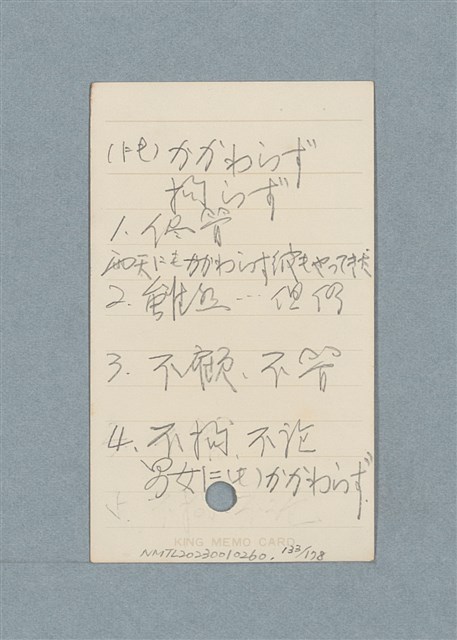 (にも)かかわらず
拘らず
1. 侭管
雨天にもかかわらず彼もやって来た
2. 雖然…但仍
3. 不顧、不管
4. 不拘、不論
男女に(も)かかわらず
KING MEMO CARD
NMTL20230010260, 133/178